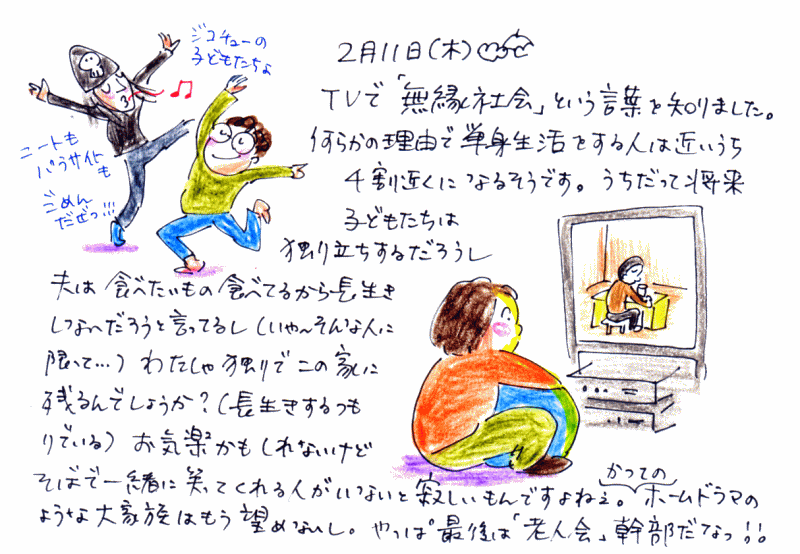 ジコチューの
子どもたちよ
ニートも
パラサイトも
ごめん
だぜっ!!!
2月11日(木)
TVで「無縁社会」という言葉を知りました。
何らかの理由で単身生活をする人は近いうち
4割近くになるそうです。うちだって将来
子どもたちは
独り立ちするだろうし
夫は食べたいもの食べてるから長生き
しないだろうと言ってるし(いや〜そんな人に
限って…)わたしゃ独りでこの家に
残るんでしょうか?(長生きするつも
りでいる)お気楽かもしれないけど
そばで一緒に笑ってくれる人がいないと寂しいもんですよねぇ。かつてのホームドラマの
ような大家族はもう望めないし。やっぱ最後は「老人会」幹部だなっ!!